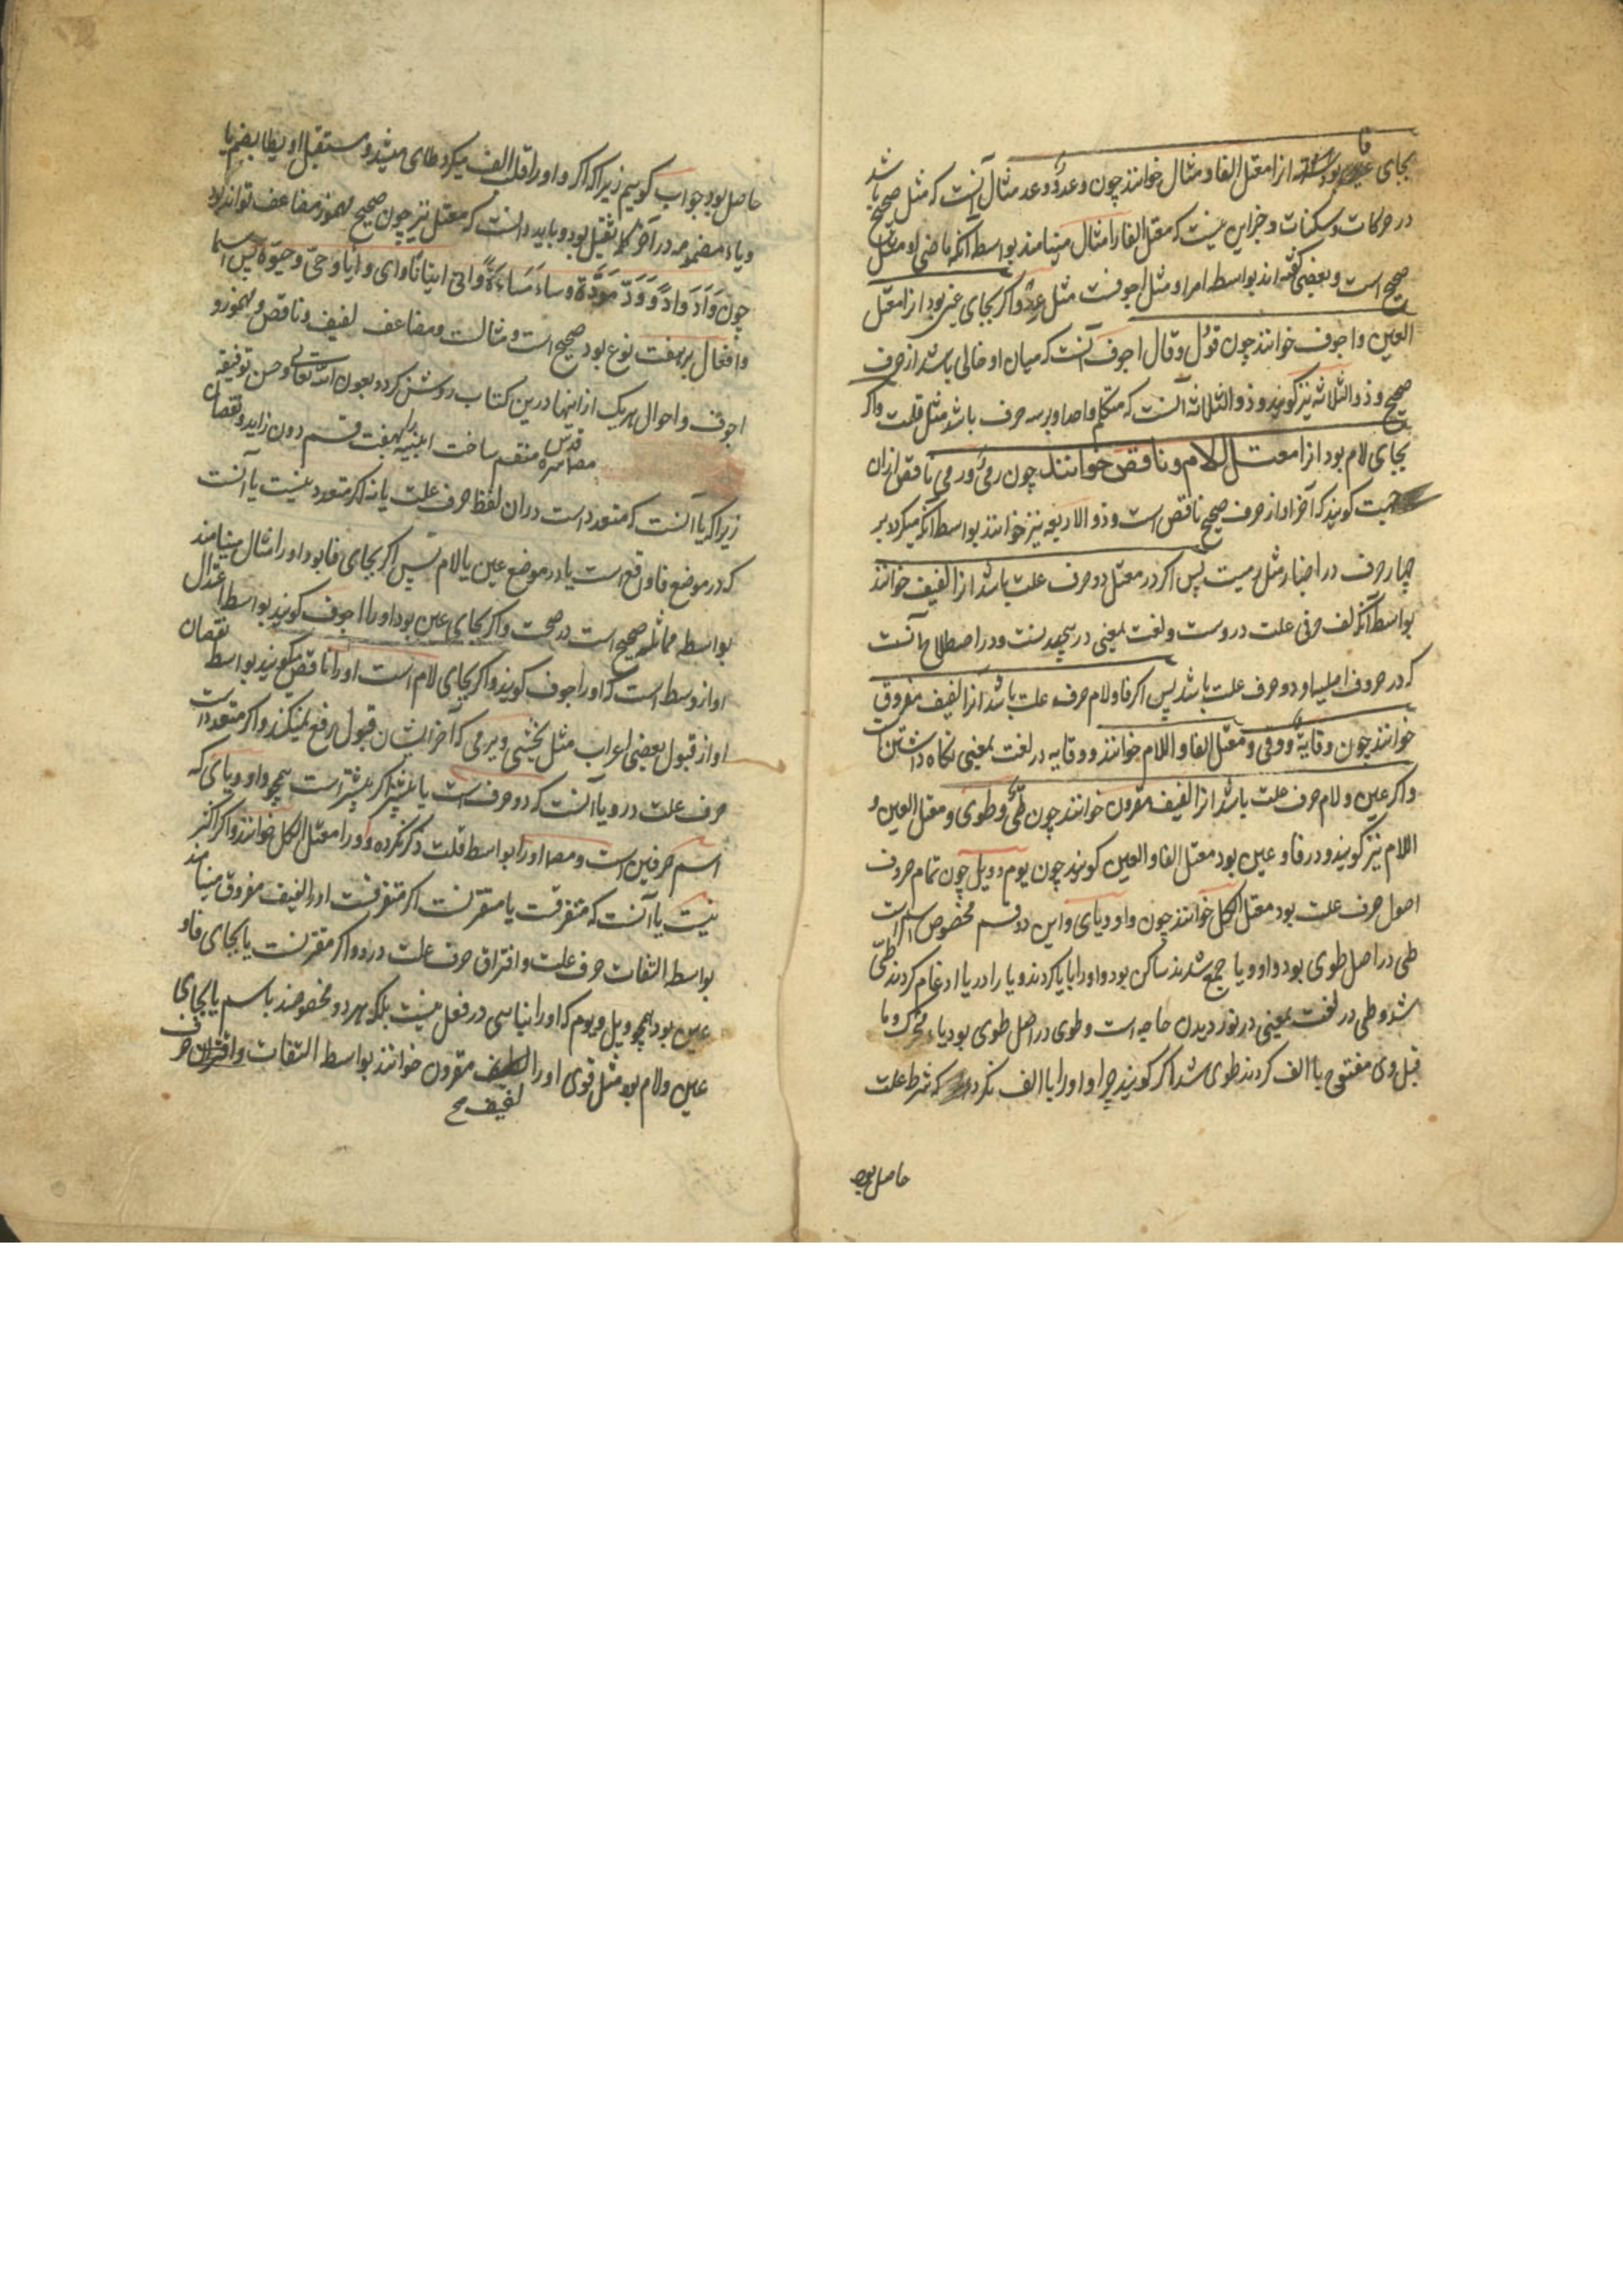 بجای فا بود انرا معتل الفا و مثال خوانند چون وعدٌ و وعد مثال آنست که مثل صحیح باشد
در حرکات و سکنات و جز این نیست که معتل الفا را مثال مینامند بواسطه آنکه ماضی او مثل
صحیح است و بعضی گفته اند بواسطه امر او مثل اجوفست مثل عِد و اگر بجای عین بود انرا معتل
العین و اجوف خوانند چون قول و قال اجوف آنست که میان او خالی باشد از حرف
صحیح و ذو الثلاثه نیز گویند و ذو الثلاثه آنست که متکلم واحد او بر سه حرف باشد مثل قلت و اگر
بجای لام بود انرا معتل اللام و ناقص خوانند چون رمیٌ و رمی ناقص ازان
جهت گویند که آخر او از حرف صحیح ناقص است و ذو الاربعه نیز خوانند بواسطه آنکه میگردد بر
چهار حرف در اخبار مثل رمیت پس اگر در معتل دو حرف علت باشد انرا لفیف خوانند
بواسطه آنکه لف حرفی علت دروست و لغت بمعنی در پیچیدنست و در اصطلاح آنست
که در حروف اصلیه او دو حرف علت باشد پس اگر فا و لام حرف علت باشد انرا لفیف مفروق
خوانند چون وقایة و وقی و معتل الفا و اللام خوانند و وقایه در لغت بمعنی نگاه داشتن است
و اگر عین و لام حرف علت باشد انرا لفیف مقرون خوانند چون طیٌّ و طوی و معتل العین و
اللام نیز گویند و در فا و عین بود معتل الفا و العین گویند چون یوم و ویل چون تمام حروف
اصول حرف علت بود معتل الکل خوانند چون واو و یای و این دو قسم مخصوص اسم است
طی در اصل طوی بود واو و یا جمع شدند ساکن بود واو را با یا کردند و یا را در یا ادغام کردند طیّ
شد و طی در لغت بمعنی در نوردیدن جامه است و طوی در اصل طوی بود یاء متحرک و ما
قبل وی مفتوح یا الف کردند طوی شد اگر گویند چرا واو را با الف نکردند که شرط علت
حاصل بود
حاصل بود جواب گوییم زیرا که اگر واو را قلب الف میکرد طای میشد و مستقبل او یطای بضم یا
ویاء مضمومه در آخر کلمه ثقیل بود و باید دانست که معتل نیز چون صحیح مهموز و مضاعف تواند بود
چون وَأَدَ وَأدًا وَوَدَّ مَوَدَّة وساءَ مَساءَةً و اتی اتیانا و اوی و ایا و حیّ و حیوة پس اسما
و افعال بر هفت نوع بود صحیح است و مثالست و مضاعف لفیف و ناقص و مهموز و
اجوف و احوال هر یک از اینها درین کتاب روشن گردد بعون الله تعالی و حسن توفیقه
مصنف قدس سره منقسم ساخت ابنیه را بهفت قسم دون زاید و نقصان
زیرا که یا آنست که متعدد است دران لفظ حرف علت یا نه اگر متعدد نیست یا آنست
که در موضع فا واقع است یا در موضع عین یا لام پس اگر بجای فا بود او را مثال مینامند
بواسطه مماثله صحیح است در صحت و اگر بجای عین بود او را اجوف گویند بواسطه اعتدال
او از وسط است که او را جوف گویند و اگر بجای لام است او را ناقص میگویند بواسطه نقصان
او از قبول بعضی اعراب مثل یخشی و یرمی که آخر ایشان قبول رفع نمیکند و اگر متعدد است
حرف علت درو یا آنست که دو حرفست یا بیشتر اگر بیشتر است همچو واو و یای که
اسم حرفین است و مصا او را بواسطه قلت ذکر نکرده و او را معتل الکل خوانند و اگر اکثر
نیست یا آنست که متفرقست یا مقترنست اگر متفرقست او را لفیف مفروق مینامند
بواسطه التفات حرف علت و افتراق حرف علت درو و اگر مقترنست یا بجای فا و
عین بود همچو ویل و یوم که او را بنیاسی در فعل نیست بلکه هر دو مخصوصند باسم یا بجای
عین و لام بود مثل قوی او را لفیف مقرون خوانند بواسطه التفات و اقتران حرف
لفیف صح